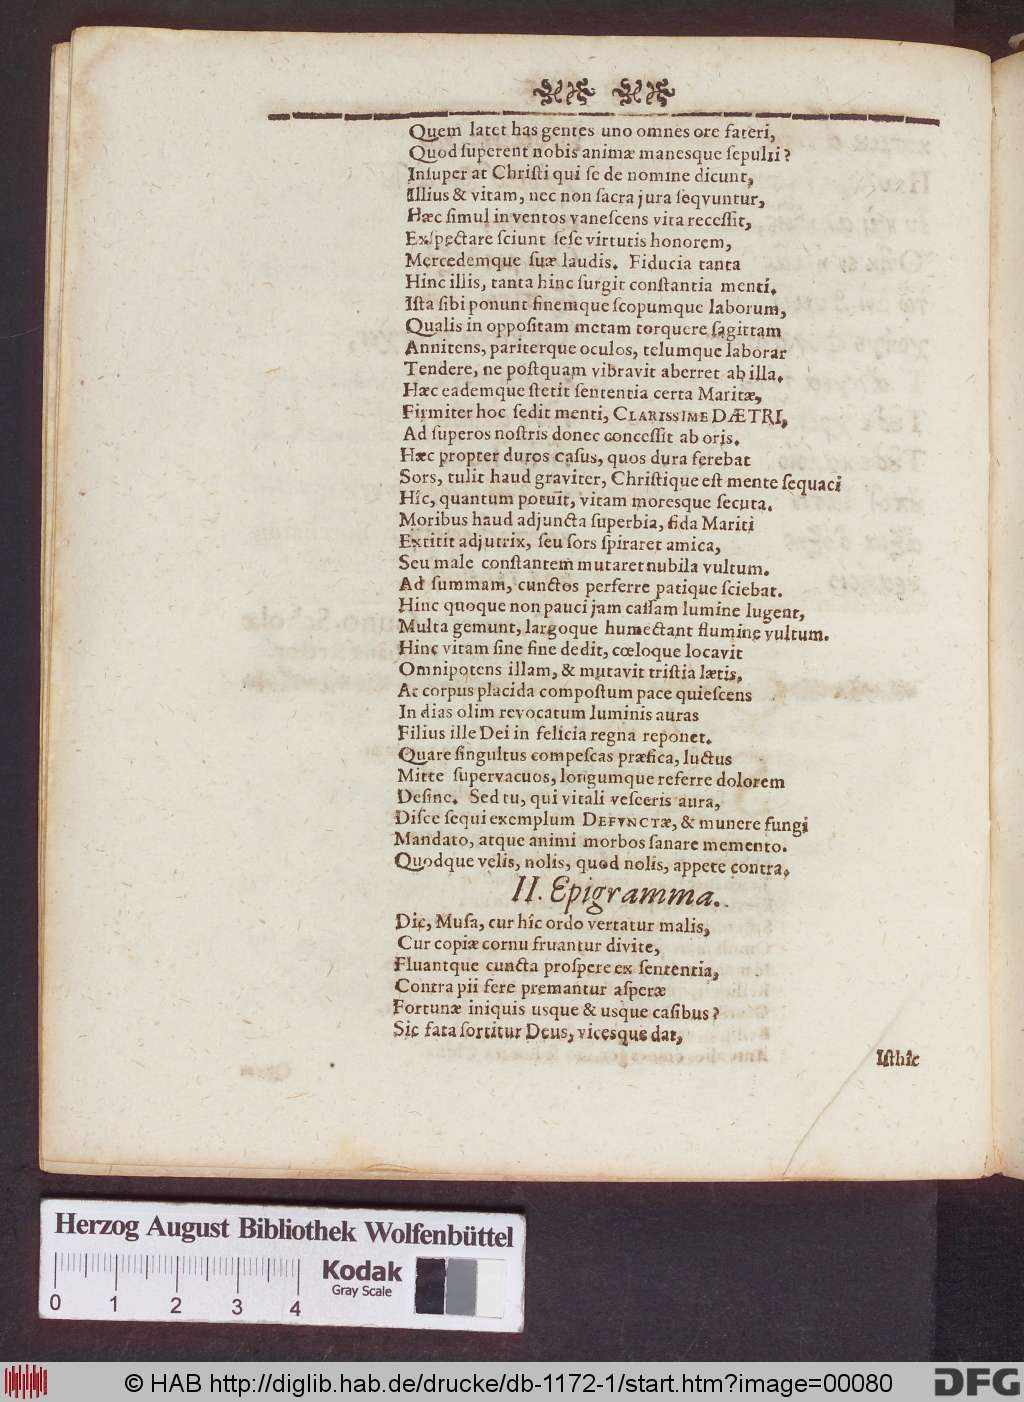 Quem latet has gentes uno omnes ore fateri,
Quod ſuperent nobis animæ manesque ſepulti?
Inſuper at Chriſti qui ſe de nomine dicunt,
Illius & vitam, nec non ſacra jura ſeqvuntur,
Hæc ſimul in ventos vaneſcens vita receſſit,
Exſpectare ſciunt ſeſe virtutis honorem,
Mercedemque ſuæ laudis. Fiducia tanta
Hinc illis, tanta hinc ſurgit conſtantia menti.
Iſta ſibi ponunt finemque ſcopumque laborum,
Qualis in oppoſitam metam torquere ſagittam
Annitens, pariterque oculos, telumque laborat
Tendere, ne poſtquam vibravit aberret ab illa.
Hæc eademque ſtetit ſententia certa Maritæ,
Firmiter hoc ſedit menti, CLARISSIME DÆTRI,
Ad ſuperos noſtris donec conceſſit ab oris.
Hæc propter duros caſus, quos dura ferebat
Sors, tulit haud graviter, Chriſtique eſt mente ſequaci
Hîc, quantum potuit, vitam moresque ſecuta.
Moribus haud adjuncta ſuperbia, fida Mariti
Extitit adjutrix, ſeu ſors ſpiraret amica,
Seu male conſtantem mutaret nubila vultum.
Ad ſummam, cunctos perferre patique ſciebat.
Hinc quoque non pauci jam caſſam lumine lugent,
Multa gemunt, largoque humectant flumine vultum.
Hinc vitam ſine fine dedit, cœloque locavit
Omnipotens illam, & mutavit triſtia lætis,
At corpus placida compoſtum pace quieſcens
In dias olim revocatum luminis auras
Filius ille Dei in felicia regna reponet.
Quare ſingultus compeſcas præfica, luctus
Mitte ſupervacuos, longumque referre dolorem
Deſine. Sed tu, qui vitali veſceris aura,
Diſce ſequi exemplum DEFVNCTÆ, & munere fungi
Mandato, atque animi morbos ſanare memento.
Quodque velis, nolis, quod nolis, appete contra.
II. Epigramma.
Dic, Muſa, cur hîc ordo vertatur malis,
Cur copiæ cornu fruantur divite,
Fluantque cuncta proſpere ex ſententia,
Contra pii fere premantur aſperæ
Fortunæ iniquis usque & usque caſibus?
Sic fata ſortitur Deus, vicesque dat,
Iſthîc
Herzog August Bibliothek Wolfenbüttel
Kodak
Gray Scale
0 1 2 3 4
© HAB http://diglib.hab.de/drucke/db-1172-1/start.htm?image=00080
DFG